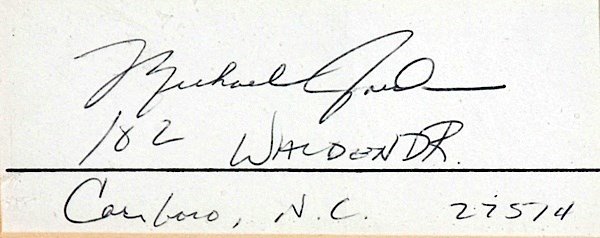 Michael Jordan
182 WALDEN DR.
Carrboro, N.C. 27514